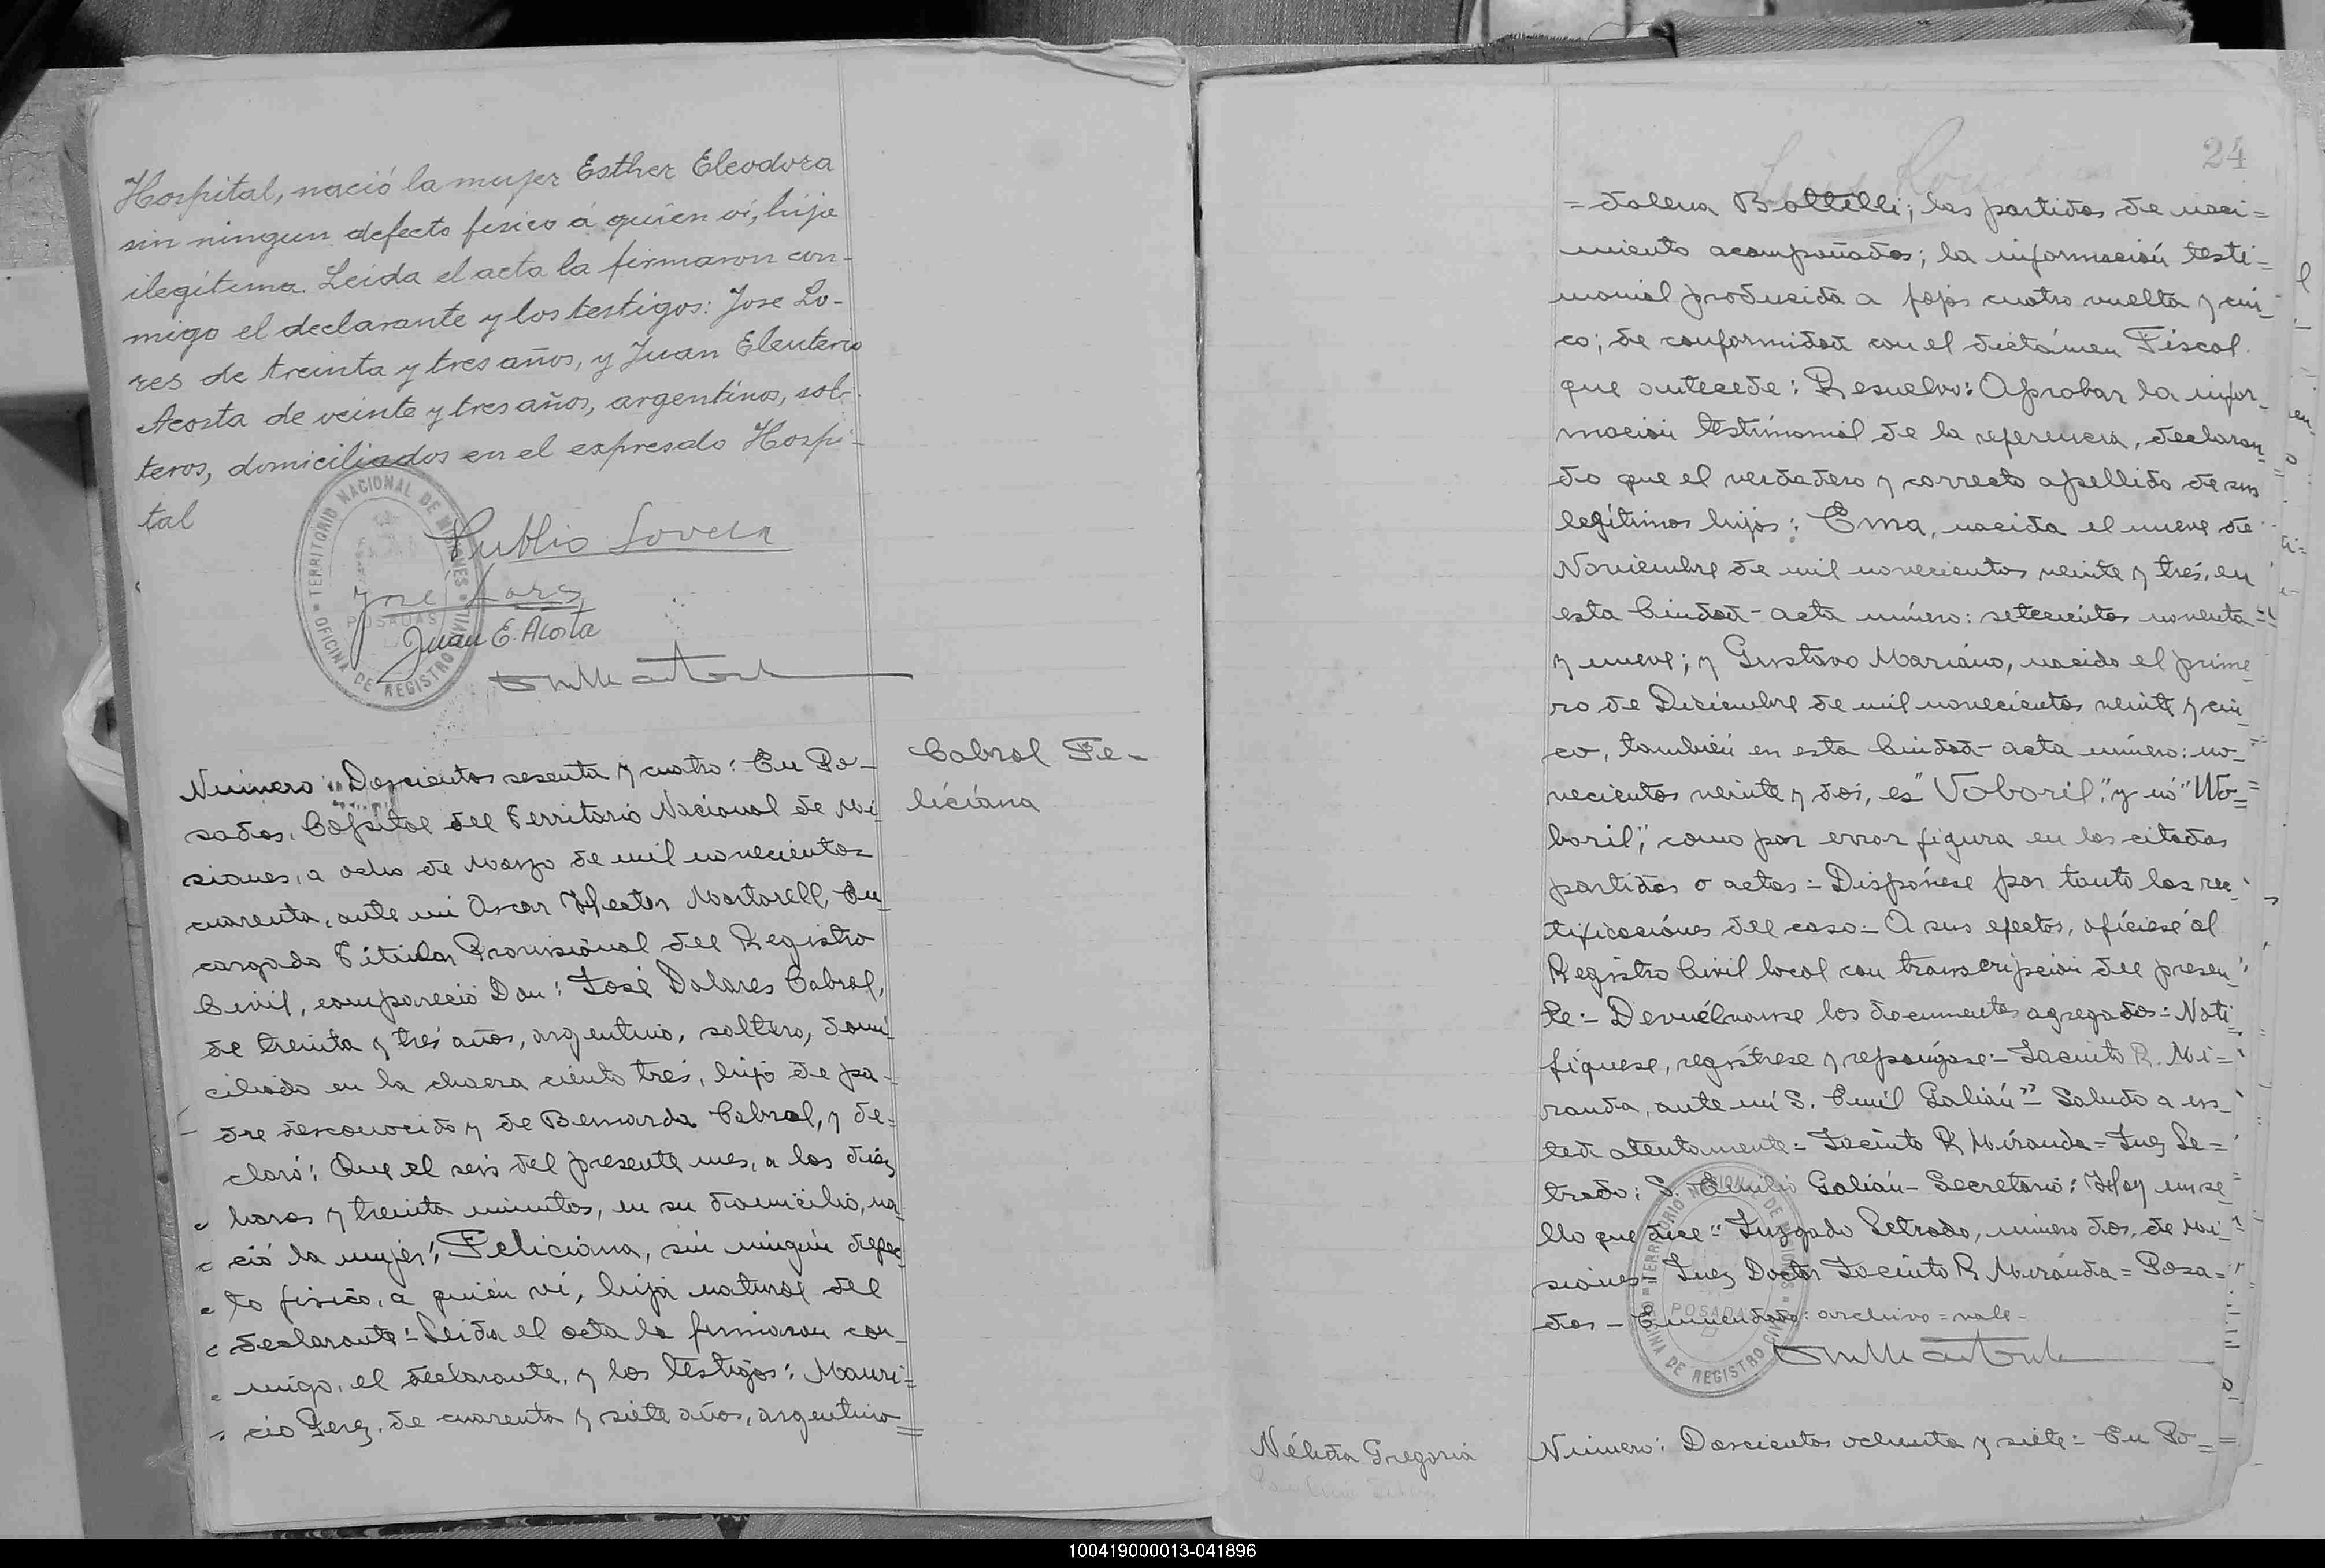 Hospital, nació la mujer Esther Eleodora
sin ningun defecto fisico á quien ví, hija
ilegítima. Leida el acta la firmaron con-
migo el declarante y los testigos: Jose Lo-
res de treinta y tres años, y Juan Eleuterio
Acosta de veinte y tres años, argentinos, sol-
teros, domiciliados en el expresado Hospi-
tal
TERRITORIO NACIONAL DE MISIONES
OFICINA DE REGISTRO CIVIL
POSADAS
Publio Lovera
José Lores
Juan E. Acosta
Número: Doscientos sesenta y cuatro: En Po-
sadas, Capital del Territorio Nacional de Mi
siones, a ocho de Marzo de mil novecientos
cuarenta, ante mi Oscar Hector Martorell, En-
cargado Titular Provisional del Registro
Civil, compareció Don: José Dolores Cabral,
de treinta y tres años, argentino, soltero, domi-
ciliado en la chacra ciento tres, hijo de pa-
dre desconocido y de Bernarda Cabral, y de=
claró: Que el seis del presente mes, a las diez
horas y treinta minutos, en su domicilio, na-
ció la mujer; Feliciana, sin ningún defec
to fisico, a quién ví, hija natural del
declarante= Leida el acta la firmaron con-
migo, el declarante, y los testigos: Mauri=
cio Perez, de cuarenta y siete años, argentino=
Cabral Fe-
liciana
24
=dalena Bottelli; las partidas de naci=
miento acompañadas; la información testi-
monial producida a fojas cuatro vuelta y cin-
co; de conformidad con el dictámen Fiscal
que antecede: Resuelvo: Aprobar la infor-
mación testimonial de la referencia, declaran-
do que el verdadero y correcto apellido de sus
legítimos hijos: Ema, nacida el nueve de
Noviembre de mil novecientos veinte y tres, en
esta Ciudad- acta número: setecientos noventa=
y nueve; y Gustavo Mariano, nacido el prime
ro de Diciembre de mil novecientos veinte y cin-
co, también en esta Ciudad- acta número: no-
vecientos veinte y dos, es "Voboril," y nó "Wo=
boril," como por error figura en las citadas
partidas o actas= Dispónese por tanto las rec-
tificaciónes del caso= A sus efectos, ofíciese al
Registro Civil local con transcripción del presen-
te:- Devuélvanse los documentos agregados= Noti-
fiquese, regístrese y repongase:- Jacinto R. Mi=
randa, ante mí S. Emil Galián"= Saludo a us-
ted atentamente= Jacinto R Miranda= Juez Le=
trado: S. Emilio Galián- Secretario: Hay un se
llo que dice "Juzgado Letrado, número dos, de Mi
siones" Juez Doctor Jacinto R Miranda= Posa=
das - Enmendado: archivo=vale-
TERRITORIO NACIONAL DE MISIONES
OFICINA DE REGISTRO CIVIL
POSADAS
Nélida Gregoria
Número: Doscientos ochenta y siete= En Po=
100419000013-041896